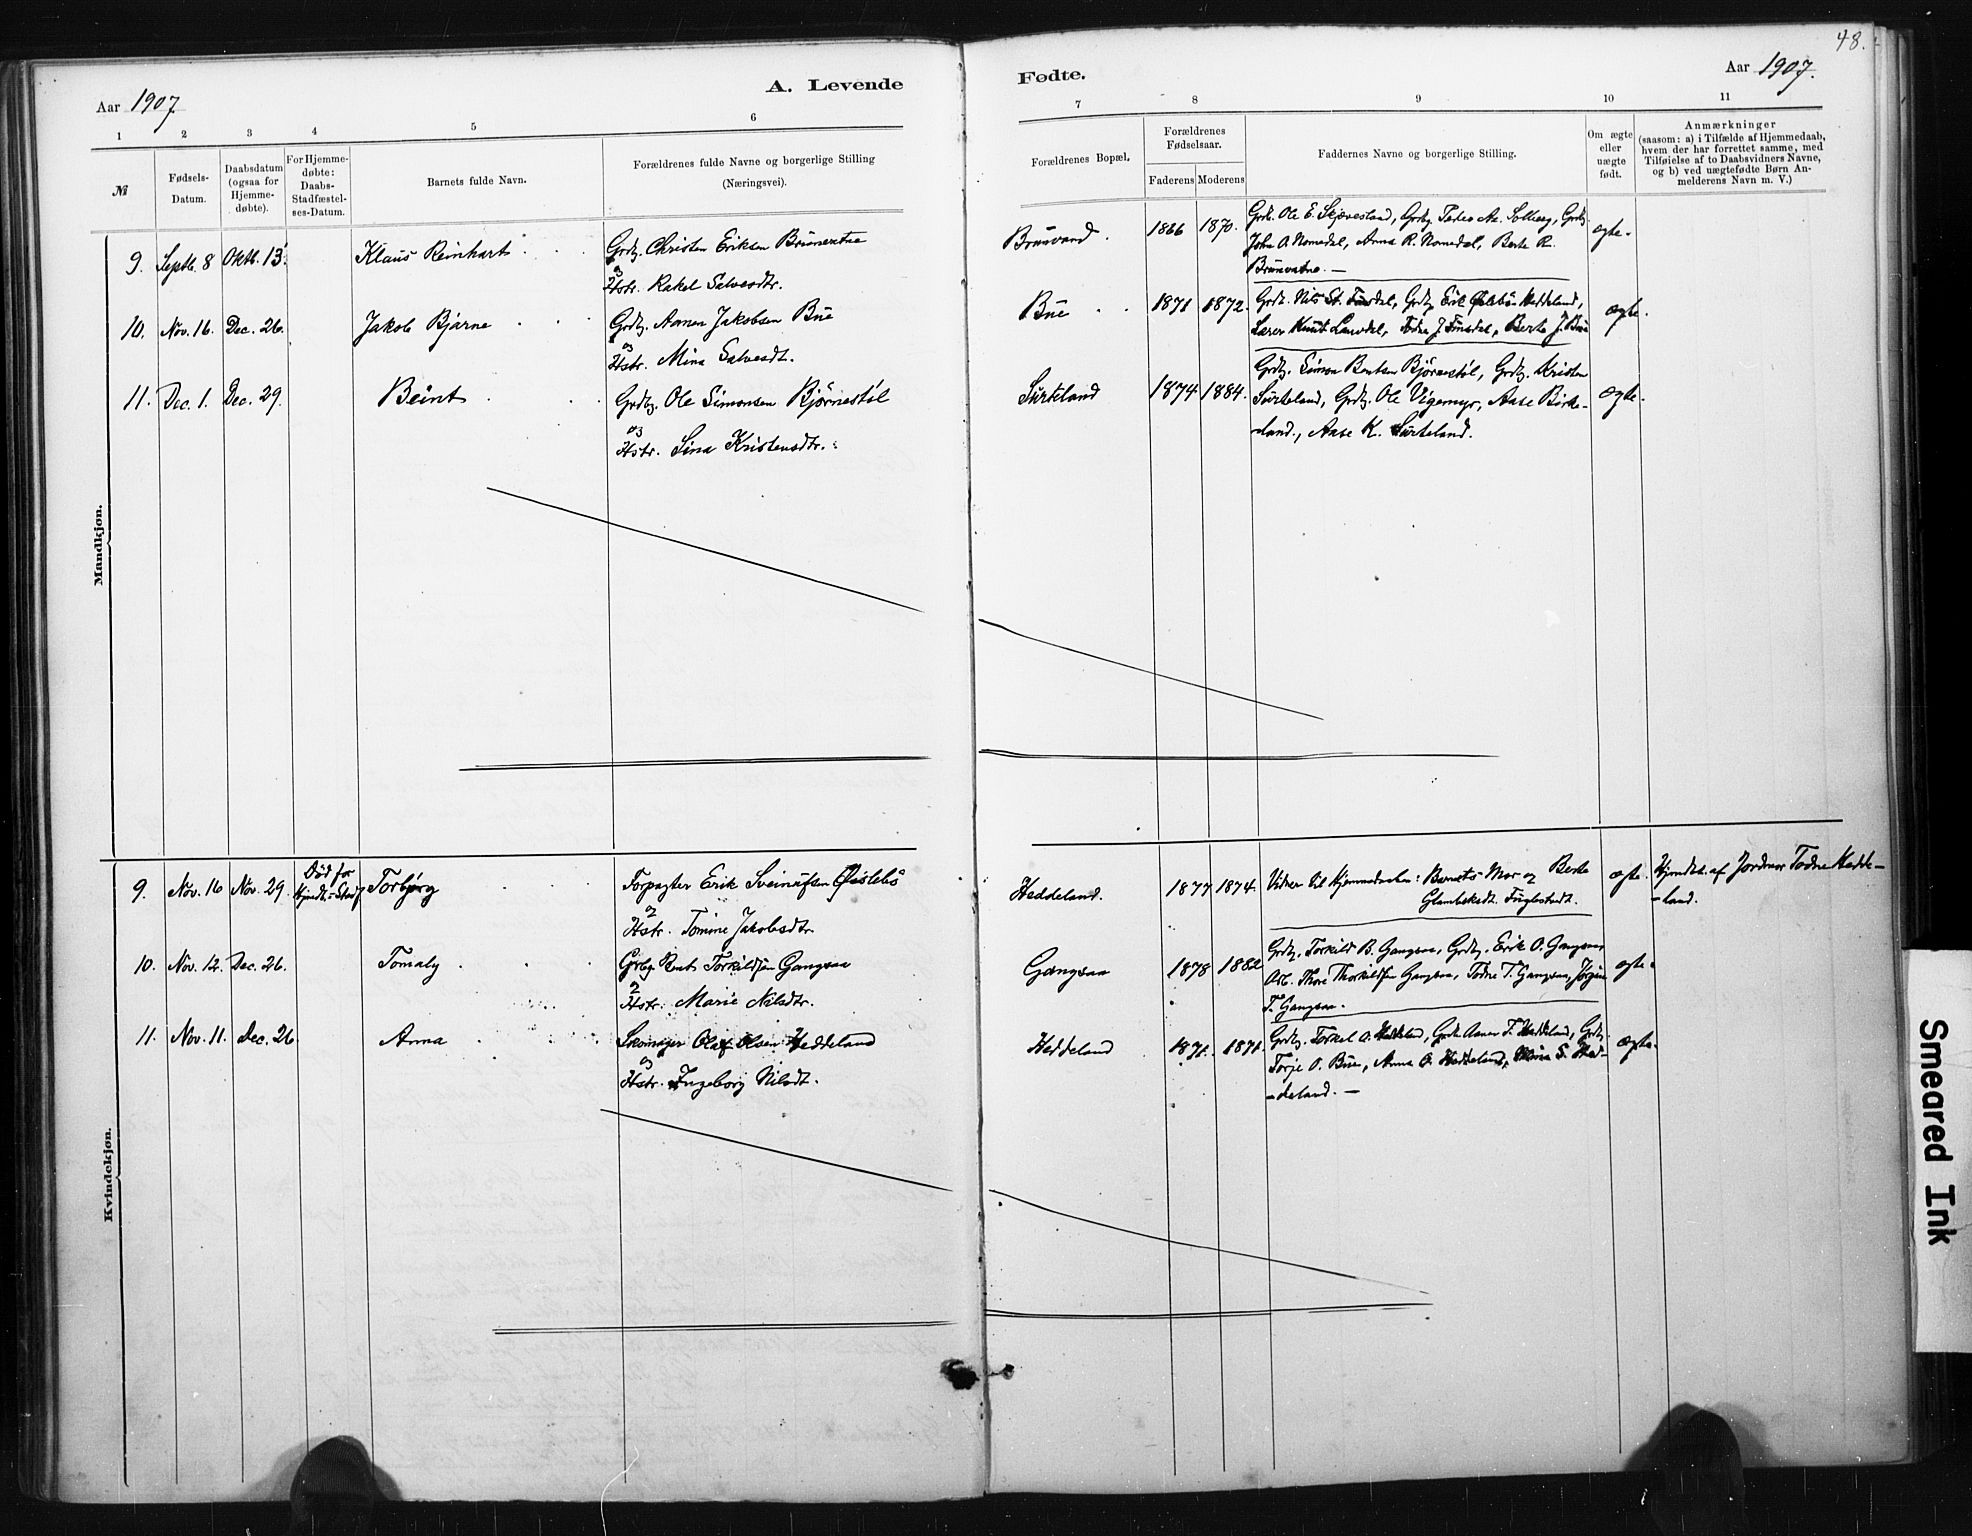 48.
Aar 1907
A. Levende
Fødte.
Aar 1907.
1 2 3 4 5 6
7 8 9 10 11
№
Fødsels-
Datum.
Daabsdatum
(ogsaa for
Hjemme-
døbte).
For Hjemme-
døbte:
Daabs-
Stadfæstel-
ses-Datum.
Barnets fulde Navn.
Forældrenes fulde Navne og borgerlige Stilling
(Næringsvei).
Forældrenes Bopæl.
Forældrenes
Fødselsaar.
Faderens Moderens
Faddernes Navne og borgerlige Stilling.
Om ægte
eller
uægte
født.
Anmærkninger
(saasom: a) i Tilfælde af Hjemmedaab,
hvem der har forrettet samme, med
Tilføielse af to Daabsvidners Navne,
og b) ved uægtefødte Børn An-
melderens Navn m. V.)
Mandkjøn.
9. Septb. 8 Oktb. 13. Klaus Reinhart
Grdb. Christen Eriksen
og
Hstr. Rakel Salvesdtr.
1866 1870.
Ole E. Skjævesland, Solberg,
John O. Nomedal, Anna R. Nomedal, Berte R.
ægte.
10. Nov. 16. Dec. 26. Jakob Bjarne
Grdb. Aanen Jakobsen Bue
og
Hstr. Mina Salvesdt.
Bue 1871 1872.
Heddeland,
Lærer Knud Berte J. Bue
ægte.
11. Dec. 1. Dec. 29. Beint
Grdb. Ole Simonsen Bjørnestøl
og
Hstr. Sina Kristensdtr.
1874 1884.
Simon Bentsen Bjørnestøl, Kristen
Ole Vigemyr, Aase Birke-
land., Aase K.
ægte.
Kvindekjøn.
9. Nov. 16 Nov. 29. Død før
Torbjørg
Forpagter Erik Øislebø
og
Hstr. Tomine Jakobsdtr.
Heddeland. 1877 1874.
Vidner til Hjemmedaaben: Barnets Mor og Berte
Fuglestvedt.
ægte.
Hjmdbt. af Jordmor Todne Hedde-
land.
10. Nov. 12. Dec. 26. Tomaly
Bent Torkildsen Gangsaa
og
Hstr. Marie Nilsdtr.
Gangsaa 1878 1882
Torkild B. Gangsaa, Erik O. Gangsaa
Arb. Thore Thorkildsen Gangsaa, Todne T. Gangsaa, Jørgine
T. Gangsaa.
ægte.
11. Nov. 11. Dec. 26. Anna
Skomager Olaf Olsen Heddeland
og
Hstr. Ingeborg Nilsdt.
Heddeland 1871. 1871.
Torkel O. Heddeland, Aanen T. Heddeland,
Terje O. Bue, Anna O. Heddeland, S. Hed-
deland.
ægte.
Smeared Ink